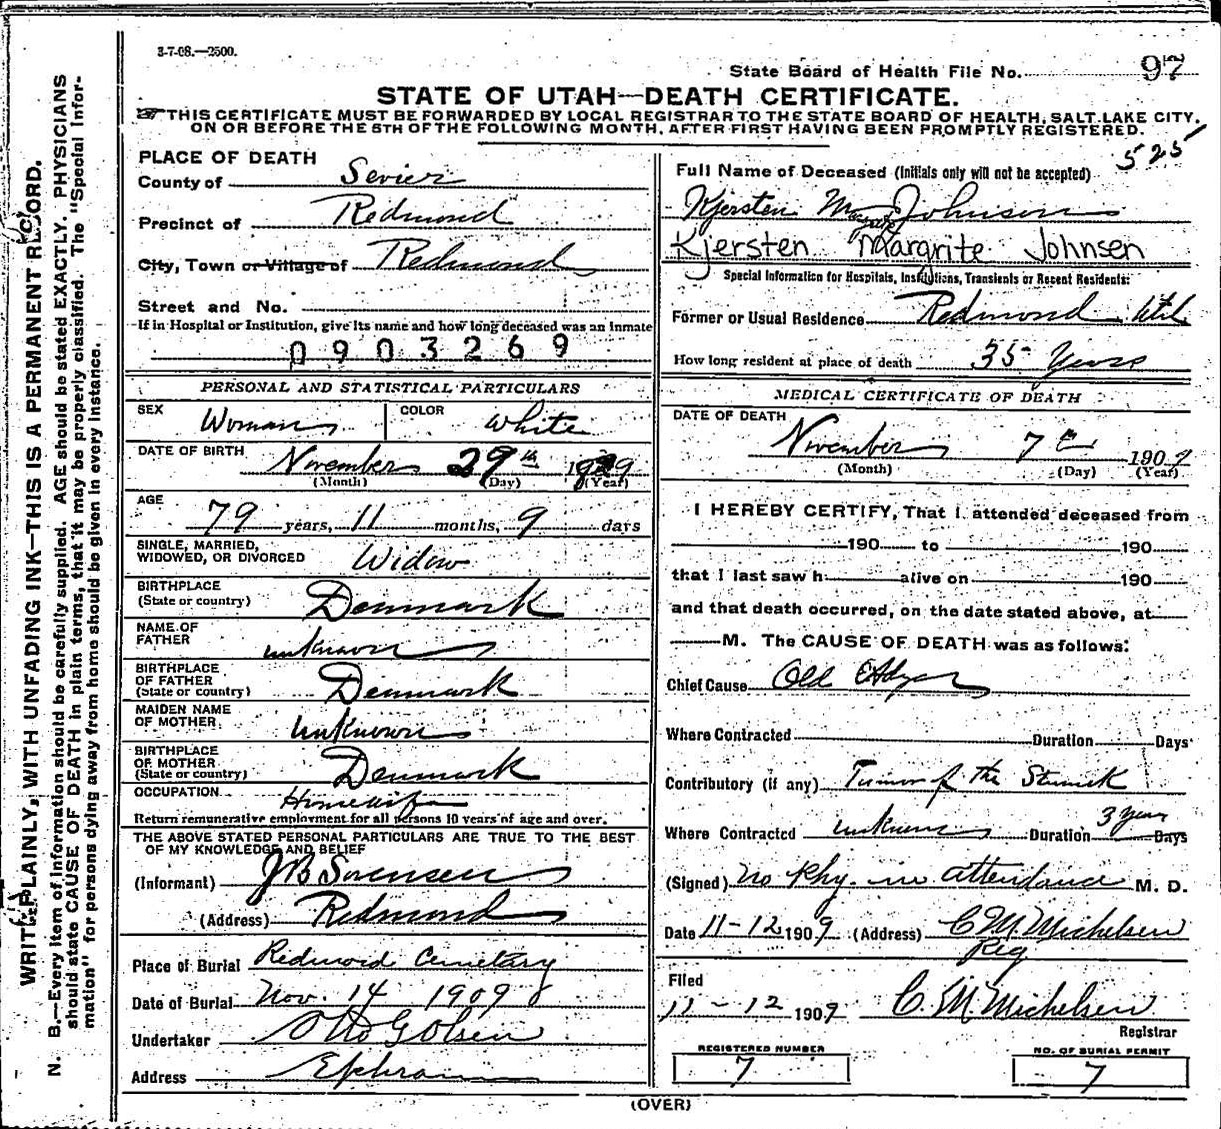 3-7-08.—2500.
State Board of Health File No. 97
STATE OF UTAH—DEATH CERTIFICATE.
THIS CERTIFICATE MUST BE FORWARDED BY LOCAL REGISTRAR TO THE STATE BOARD OF HEALTH, SALT LAKE CITY,
ON OR BEFORE THE 5TH OF THE FOLLOWING MONTH, AFTER FIRST HAVING BEEN PROMPTLY REGISTERED.
525
PLACE OF DEATH
County of Sevier
Precinct of Redmond
City, Town or Village of Redmond
Street and No.
If in Hospital or Institution, give its name and how long deceased was an inmate
0903269
PERSONAL AND STATISTICAL PARTICULARS
SEX Woman COLOR White
DATE OF BIRTH November 29th 1829
(Month) (Day) (Year)
AGE
79 years, 11 months, 9 days
SINGLE, MARRIED,
WIDOWED, OR DIVORCED Widow
BIRTHPLACE
(State or country) Denmark
NAME OF
FATHER unknown
BIRTHPLACE
OF FATHER
(State or country) Denmark
MAIDEN NAME
OF MOTHER unknown
BIRTHPLACE
OF MOTHER
(State or country) Denmark
OCCUPATION Housewife
Return remunerative employment for all persons 10 years of age and over.
THE ABOVE STATED PERSONAL PARTICULARS ARE TRUE TO THE BEST
OF MY KNOWLEDGE AND BELIEF
(Informant) J B Sorensen
(Address) Redmond
Place of Burial Redmond Cemetary
Date of Burial Nov. 14 1909
Undertaker Otto G Olsen
Address Ephraim
Full Name of Deceased (Initials only will not be accepted)
Kjersten Johnson
Kjersten Margrite Johnsen
Special Information for Hospitals, Institutions, Transients or Recent Residents:
Former or Usual Residence Redmond Utah
How long resident at place of death 35 Years
MEDICAL CERTIFICATE OF DEATH
DATE OF DEATH
November 7th 1909
(Month) (Day) (Year)
I HEREBY CERTIFY, That I attended deceased from
190 to 190
that I last saw h alive on 190
and that death occurred, on the date stated above, at
M. The CAUSE OF DEATH was as follows:
Chief Cause Old
Where Contracted Duration Days
Contributory (if any) Tumor of the Stomick
Where Contracted unknown Duration 3 years Days
(Signed) no Phy. in attendance M. D.
Date 11-12 1909 (Address) C M Michelsen
Reg
Filed
11-12 1909 C. M. Michelsen
Registrar
REGISTERED NUMBER
7
NO. OF BURIAL PERMIT
7
(OVER)
WRITE PLAINLY, WITH UNFADING INK—THIS IS A PERMANENT RECORD.
N. B.—Every item of information should be carefully supplied. AGE should be stated EXACTLY. PHYSICIANS
should state CAUSE OF DEATH in plain terms, that it may be properly classified. The "Special Infor-
mation" for persons dying away from home should be given in every instance.